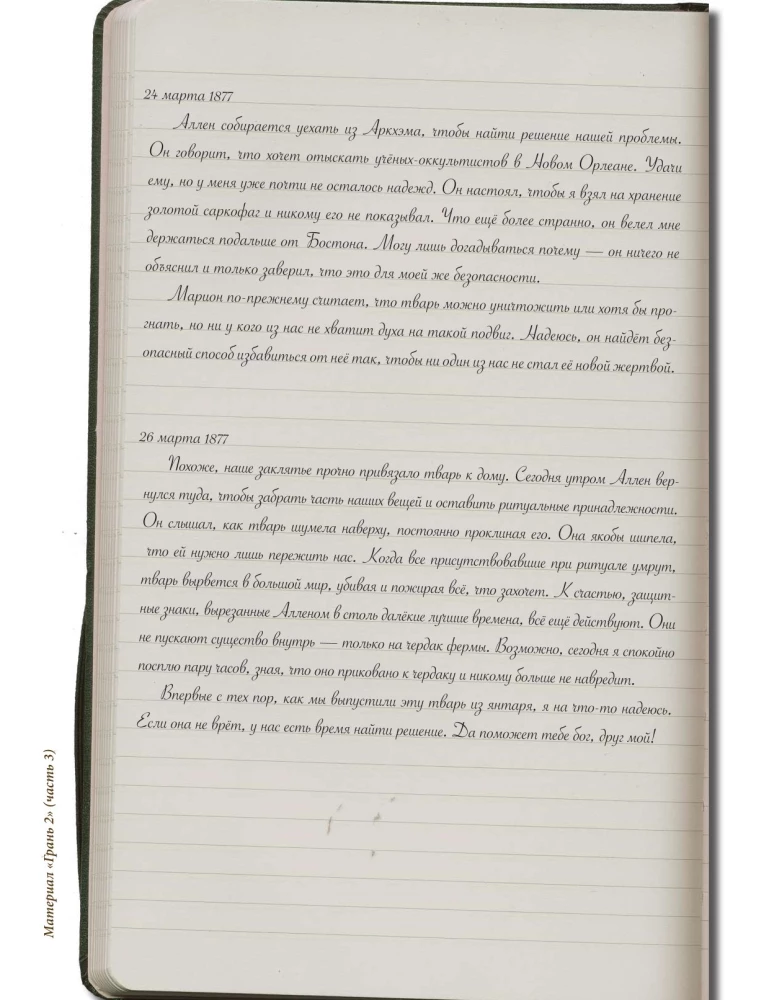 24 марта 1877
Аллен собирается уехать из Аркхэма, чтобы найти решение нашей проблемы.
Он говорит, что хочет отыскать учёных-оккультистов в Новом Орлеане. Удачи
ему, но у меня уже почти не осталось надежд. Он настоял, чтобы я взял на хранение
золотой саркофаг и никому его не показывал. Что ещё более странно, он велел мне
держаться подальше от Бостона. Могу лишь догадываться почему — он ничего не
объяснил и только заверил, что это для моей же безопасности.
Марион по-прежнему считает, что тварь можно уничтожить или хотя бы про-
гнать, но ни у кого из нас не хватит духа на такой подвиг. Надеюсь, он найдёт без-
опасный способ избавиться от неё так, чтобы ни один из нас не стал её новой жертвой.
26 марта 1877
Похоже, наше заклятье прочно привязало тварь к дому. Сегодня утром Аллен вер-
нулся туда, чтобы забрать часть наших вещей и оставить ритуальные принадлежности.
Он слышал, как тварь шумела наверху, постоянно проклиная его. Она якобы шипела,
что ей нужно лишь пережить нас. Когда все присутствовавшие при ритуале умрут,
тварь вырвется в большой мир, убивая и пожирая всё, что захочет. К счастью, защит-
ные знаки, вырезанные Алленом в столь далёкие лучшие времена, всё ещё действуют. Они
не пускают существо внутрь — только на чердак фермы. Возможно, сегодня я спокойно
посплю пару часов, зная, что оно приковано к чердаку и никому больше не навредит.
Впервые с тех пор, как мы выпустили эту тварь из янтаря, я на что-то надеюсь.
Если она не врёт, у нас есть время найти решение. Да поможет тебе бог, друг мой!
Материал «Грань 2» (часть 3)